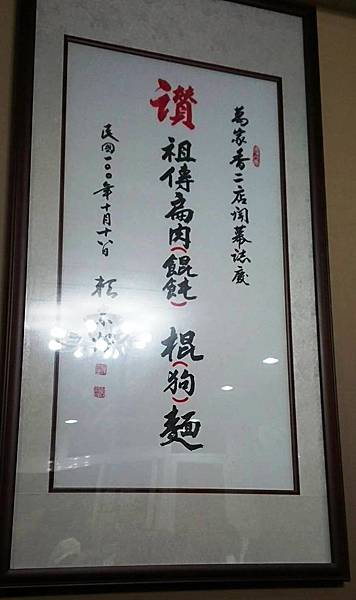 萬家香二店開幕誌慶
讚
祖傳扁肉(餛飩)棍(狗)麵
民國一〇〇年十月十八日
賴